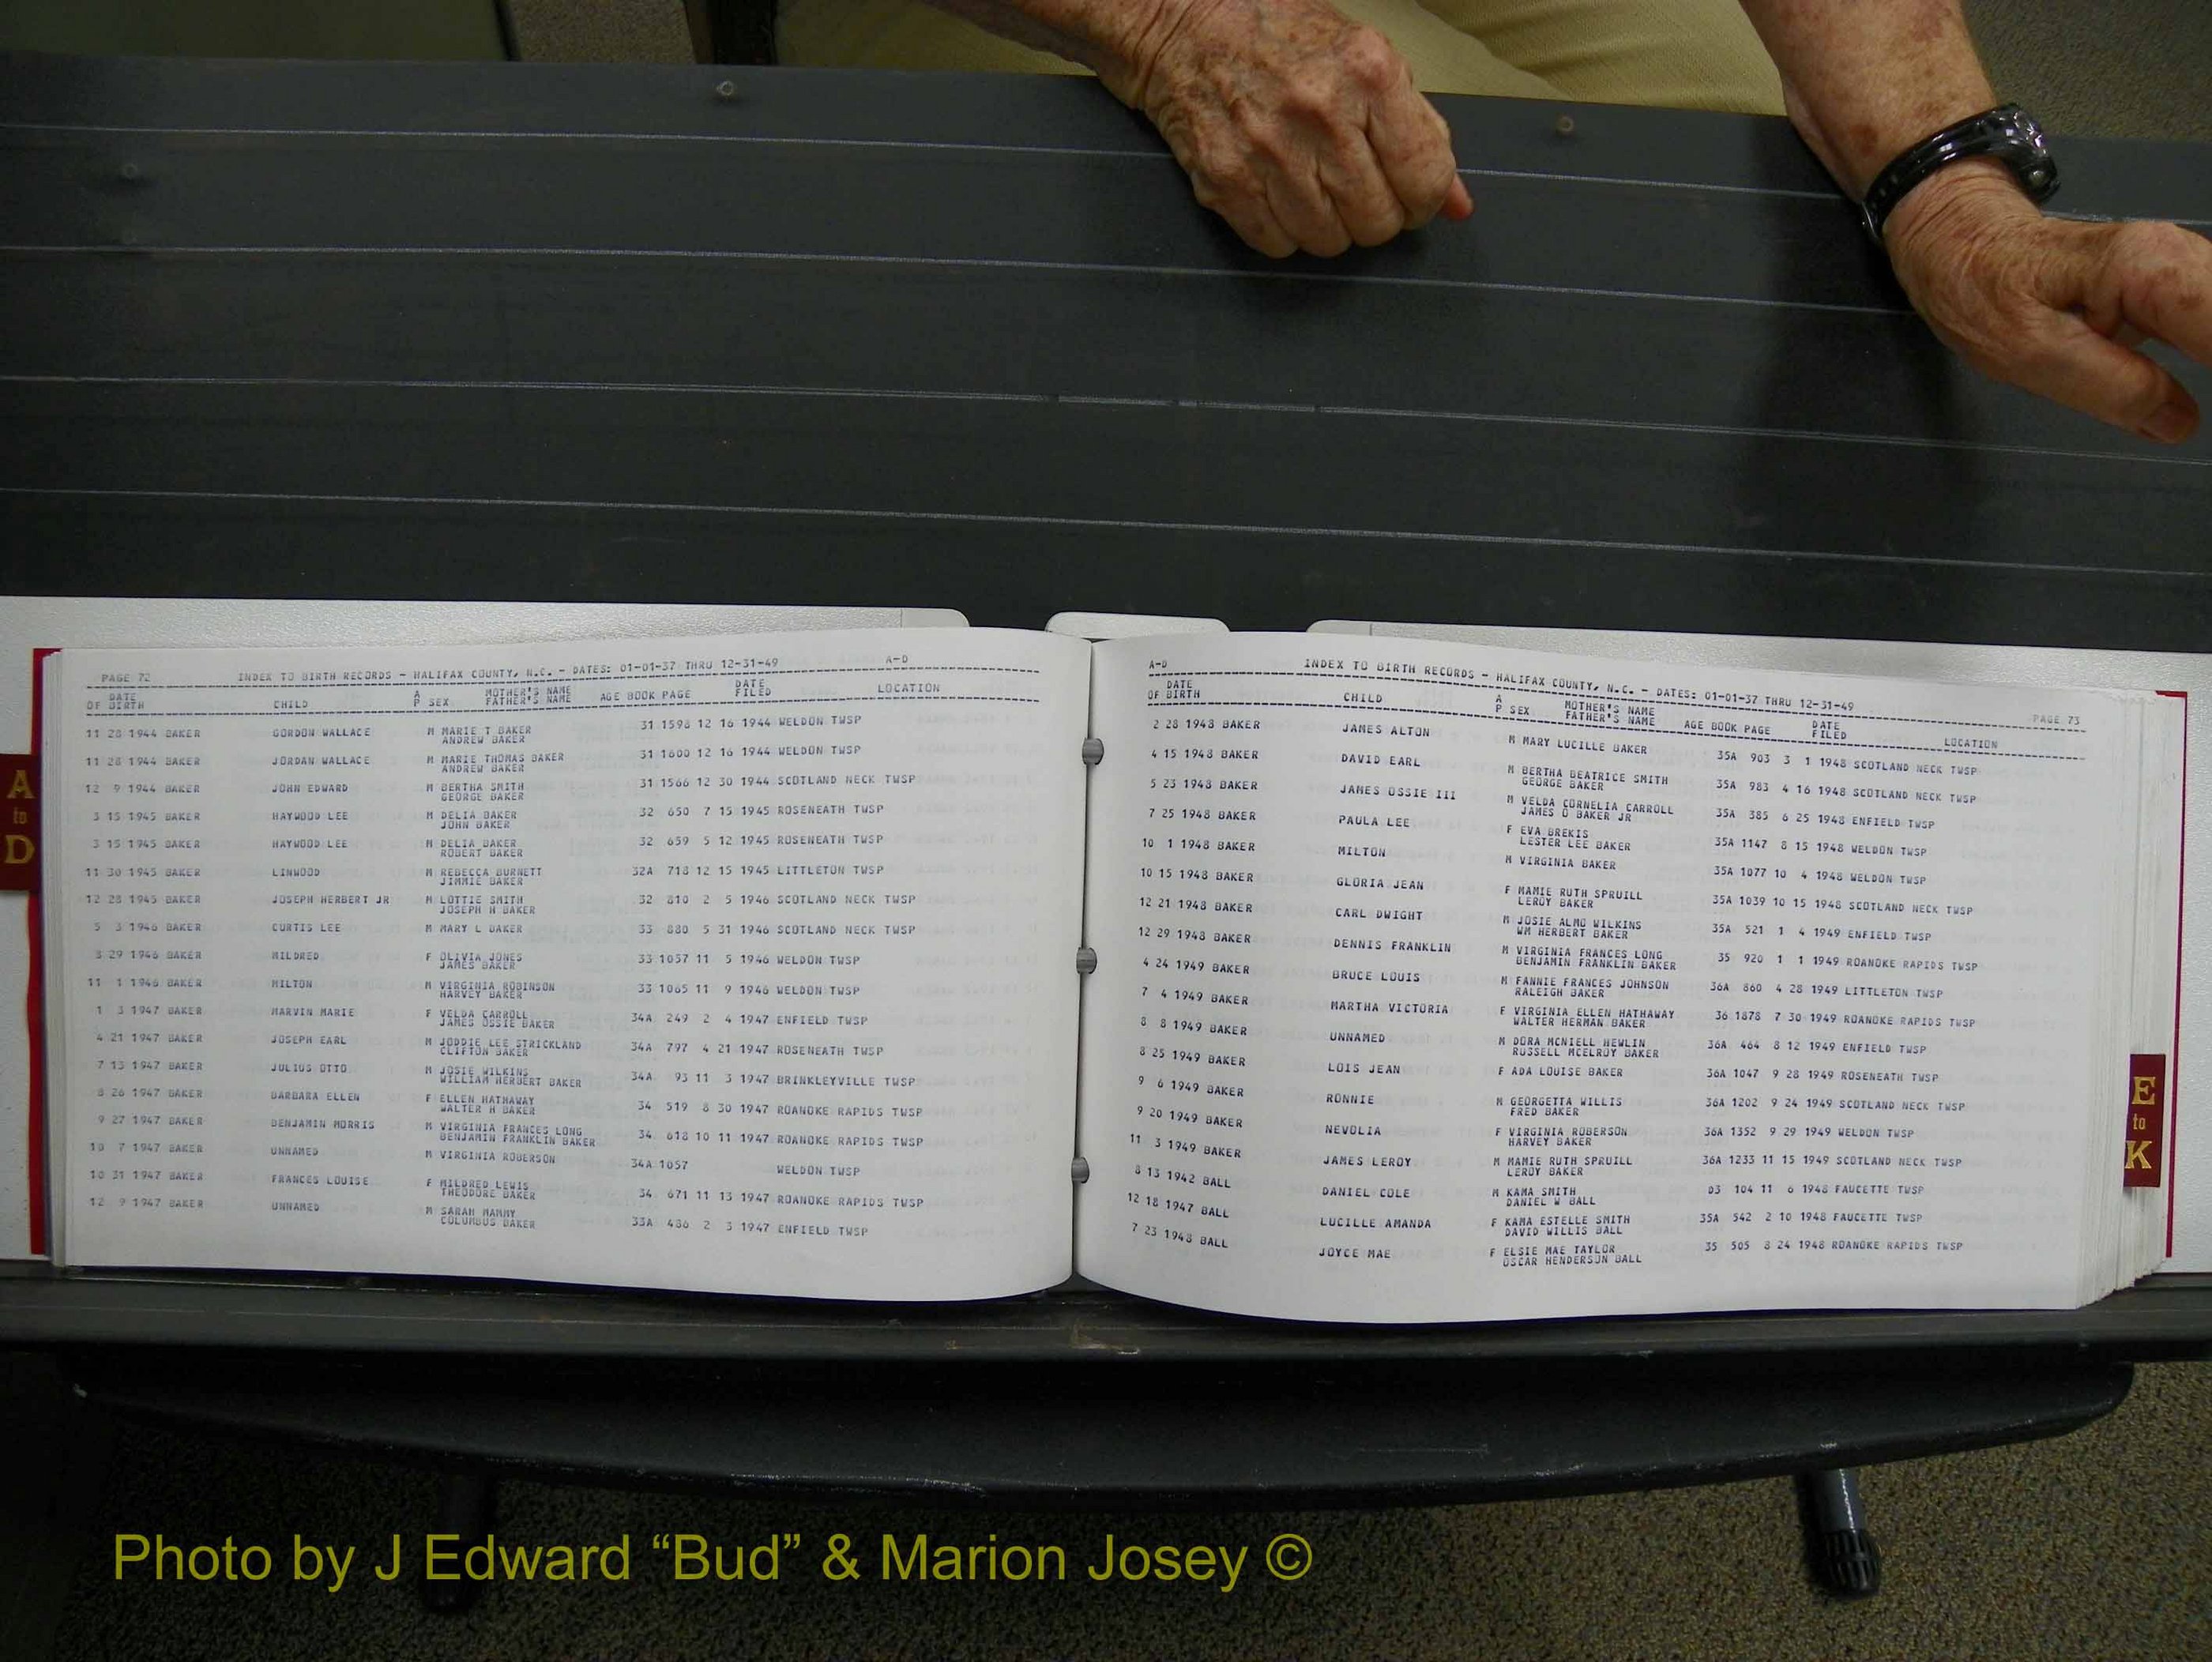 PAGE 72 INDEX TO BIRTH RECORDS - HALIFAX COUNTY, N.C. - DATES: 01-01-37 THRU 12-31-49 A-D
DATE A MOTHER'S NAME DATE
OF BIRTH CHILD P SEX FATHER'S NAME AGE BOOK PAGE FILED LOCATION
11 28 1944 BAKER GORDON WALLACE M MARIE T BAKER 31 1598 12 16 1944 WELDON TWSP
ANDREW BAKER
11 28 1944 BAKER JORDAN WALLACE M MARIE THOMAS BAKER 31 1600 12 16 1944 WELDON TWSP
ANDREW BAKER
12 9 1944 BAKER JOHN EDWARD M BERTHA SMITH 31 1566 12 30 1944 SCOTLAND NECK TWSP
GEORGE BAKER
3 15 1945 BAKER HAYWOOD LEE M DELIA BAKER 32 650 7 15 1945 ROSENEATH TWSP
JOHN BAKER
3 15 1945 BAKER HAYWOOD LEE M DELIA BAKER 32 659 5 12 1945 ROSENEATH TWSP
ROBERT BAKER
11 30 1945 BAKER LINWOOD M REBECCA BURNETT 32A 718 12 15 1945 LITTLETON TWSP
JIMMIE BAKER
12 28 1945 BAKER JOSEPH HERBERT JR M LOTTIE SMITH 32 810 2 5 1946 SCOTLAND NECK TWSP
JOSEPH H BAKER
5 3 1946 BAKER CURTIS LEE M MARY L BAKER 33 880 5 31 1946 SCOTLAND NECK TWSP
8 29 1946 BAKER MILDRED F OLIVIA JONES 33 1057 11 5 1946 WELDON TWSP
JAMES BAKER
11 1 1946 BAKER MILTON M VIRGINIA ROBINSON 33 1065 11 9 1946 WELDON TWSP
HARVEY BAKER
1 3 1947 BAKER MARVIN MARIE F VELDA CARROLL 34A 249 2 4 1947 ENFIELD TWSP
JAMES OSSIE BAKER
4 21 1947 BAKER JOSEPH EARL M JODDIE LEE STRICKLAND 34A 797 4 21 1947 ROSENEATH TWSP
CLIFTON BAKER
7 13 1947 BAKER JULIUS OTTO M JOSIE WILKINS 34A 93 11 3 1947 BRINKLEYVILLE TWSP
WILLIAM HERBERT BAKER
8 26 1947 BAKER BARBARA ELLEN F ELLEN HATHAWAY 34 519 8 30 1947 ROANOKE RAPIDS TWSP
WALTER H BAKER
9 27 1947 BAKER BENJAMIN MORRIS M VIRGINIA FRANCES LONG 34 618 10 11 1947 ROANOKE RAPIDS TWSP
BENJAMIN FRANKLIN BAKER
10 7 1947 BAKER UNNAMED M VIRGINIA ROBERSON 34A 1057 WELDON TWSP
10 31 1947 BAKER FRANCES LOUISE F MILDRED LEWIS 34 671 11 13 1947 ROANOKE RAPIDS TWSP
THEODORE BAKER
12 9 1947 BAKER UNNAMED M SARAH MAMMY 33A 436 2 3 1947 ENFIELD TWSP
COLUMBUS BAKER
A-D INDEX TO BIRTH RECORDS - HALIFAX COUNTY, N.C. - DATES: 01-01-37 THRU 12-31-49 PAGE 73
DATE A MOTHER'S NAME DATE
OF BIRTH CHILD P SEX FATHER'S NAME AGE BOOK PAGE FILED LOCATION
2 28 1948 BAKER JAMES ALTON M MARY LUCILLE BAKER 35A 903 3 1 1948 SCOTLAND NECK TWSP
4 15 1948 BAKER DAVID EARL M BERTHA BEATRICE SMITH 35A 983 4 16 1948 SCOTLAND NECK TWSP
GEORGE BAKER
5 23 1948 BAKER JAMES OSSIE III M VELDA CORNELIA CARROLL 35A 385 6 25 1948 ENFIELD TWSP
JAMES O BAKER JR
7 25 1948 BAKER PAULA LEE F EVA BREKIS 35A 1147 8 15 1948 WELDON TWSP
LESTER LEE BAKER
10 1 1948 BAKER MILTON M VIRGINIA BAKER 35A 1077 10 4 1948 WELDON TWSP
10 15 1948 BAKER GLORIA JEAN F MAMIE RUTH SPRUILL 35A 1039 10 15 1948 SCOTLAND NECK TWSP
LEROY BAKER
12 21 1948 BAKER CARL DWIGHT M JOSIE ALMO WILKINS 35A 521 1 4 1949 ENFIELD TWSP
WM HERBERT BAKER
12 29 1948 BAKER DENNIS FRANKLIN M VIRGINIA FRANCES LONG 35 920 1 1 1949 ROANOKE RAPIDS TWSP
BENJAMIN FRANKLIN BAKER
4 24 1949 BAKER BRUCE LOUIS M FANNIE FRANCES JOHNSON 36A 860 4 28 1949 LITTLETON TWSP
RALEIGH BAKER
7 4 1949 BAKER MARTHA VICTORIA F VIRGINIA ELLEN HATHAWAY 36 1878 7 30 1949 ROANOKE RAPIDS TWSP
WALTER HERMAN BAKER
8 8 1949 BAKER UNNAMED M DORA MCNIELL HEWLIN 36A 464 8 12 1949 ENFIELD TWSP
RUSSELL MCELROY BAKER
8 25 1949 BAKER LOIS JEAN F ADA LOUISE BAKER 36A 1047 9 28 1949 ROSENEATH TWSP
9 6 1949 BAKER RONNIE M GEORGETTA WILLIS 36A 1202 9 24 1949 SCOTLAND NECK TWSP
FRED BAKER
9 20 1949 BAKER NEVOLIA F VIRGINIA ROBERSON 36A 1352 9 29 1949 WELDON TWSP
HARVEY BAKER
11 3 1949 BAKER JAMES LEROY M MAMIE RUTH SPRUILL 36A 1233 11 15 1949 SCOTLAND NECK TWSP
LEROY BAKER
8 13 1942 BALL DANIEL COLE M KAMA SMITH D3 104 11 6 1948 FAUCETTE TWSP
DANIEL W BALL
12 18 1947 BALL LUCILLE AMANDA F KAMA ESTELLE SMITH 35A 542 2 10 1948 FAUCETTE TWSP
DAVID WILLIS BALL
7 23 1948 BALL JOYCE MAE F ELSIE MAE TAYLOR 35 505 8 24 1948 ROANOKE RAPIDS TWSP
OSCAR HENDERSON BALL
A
to
D
E
to
K
Photo by J Edward “Bud” & Marion Josey ©